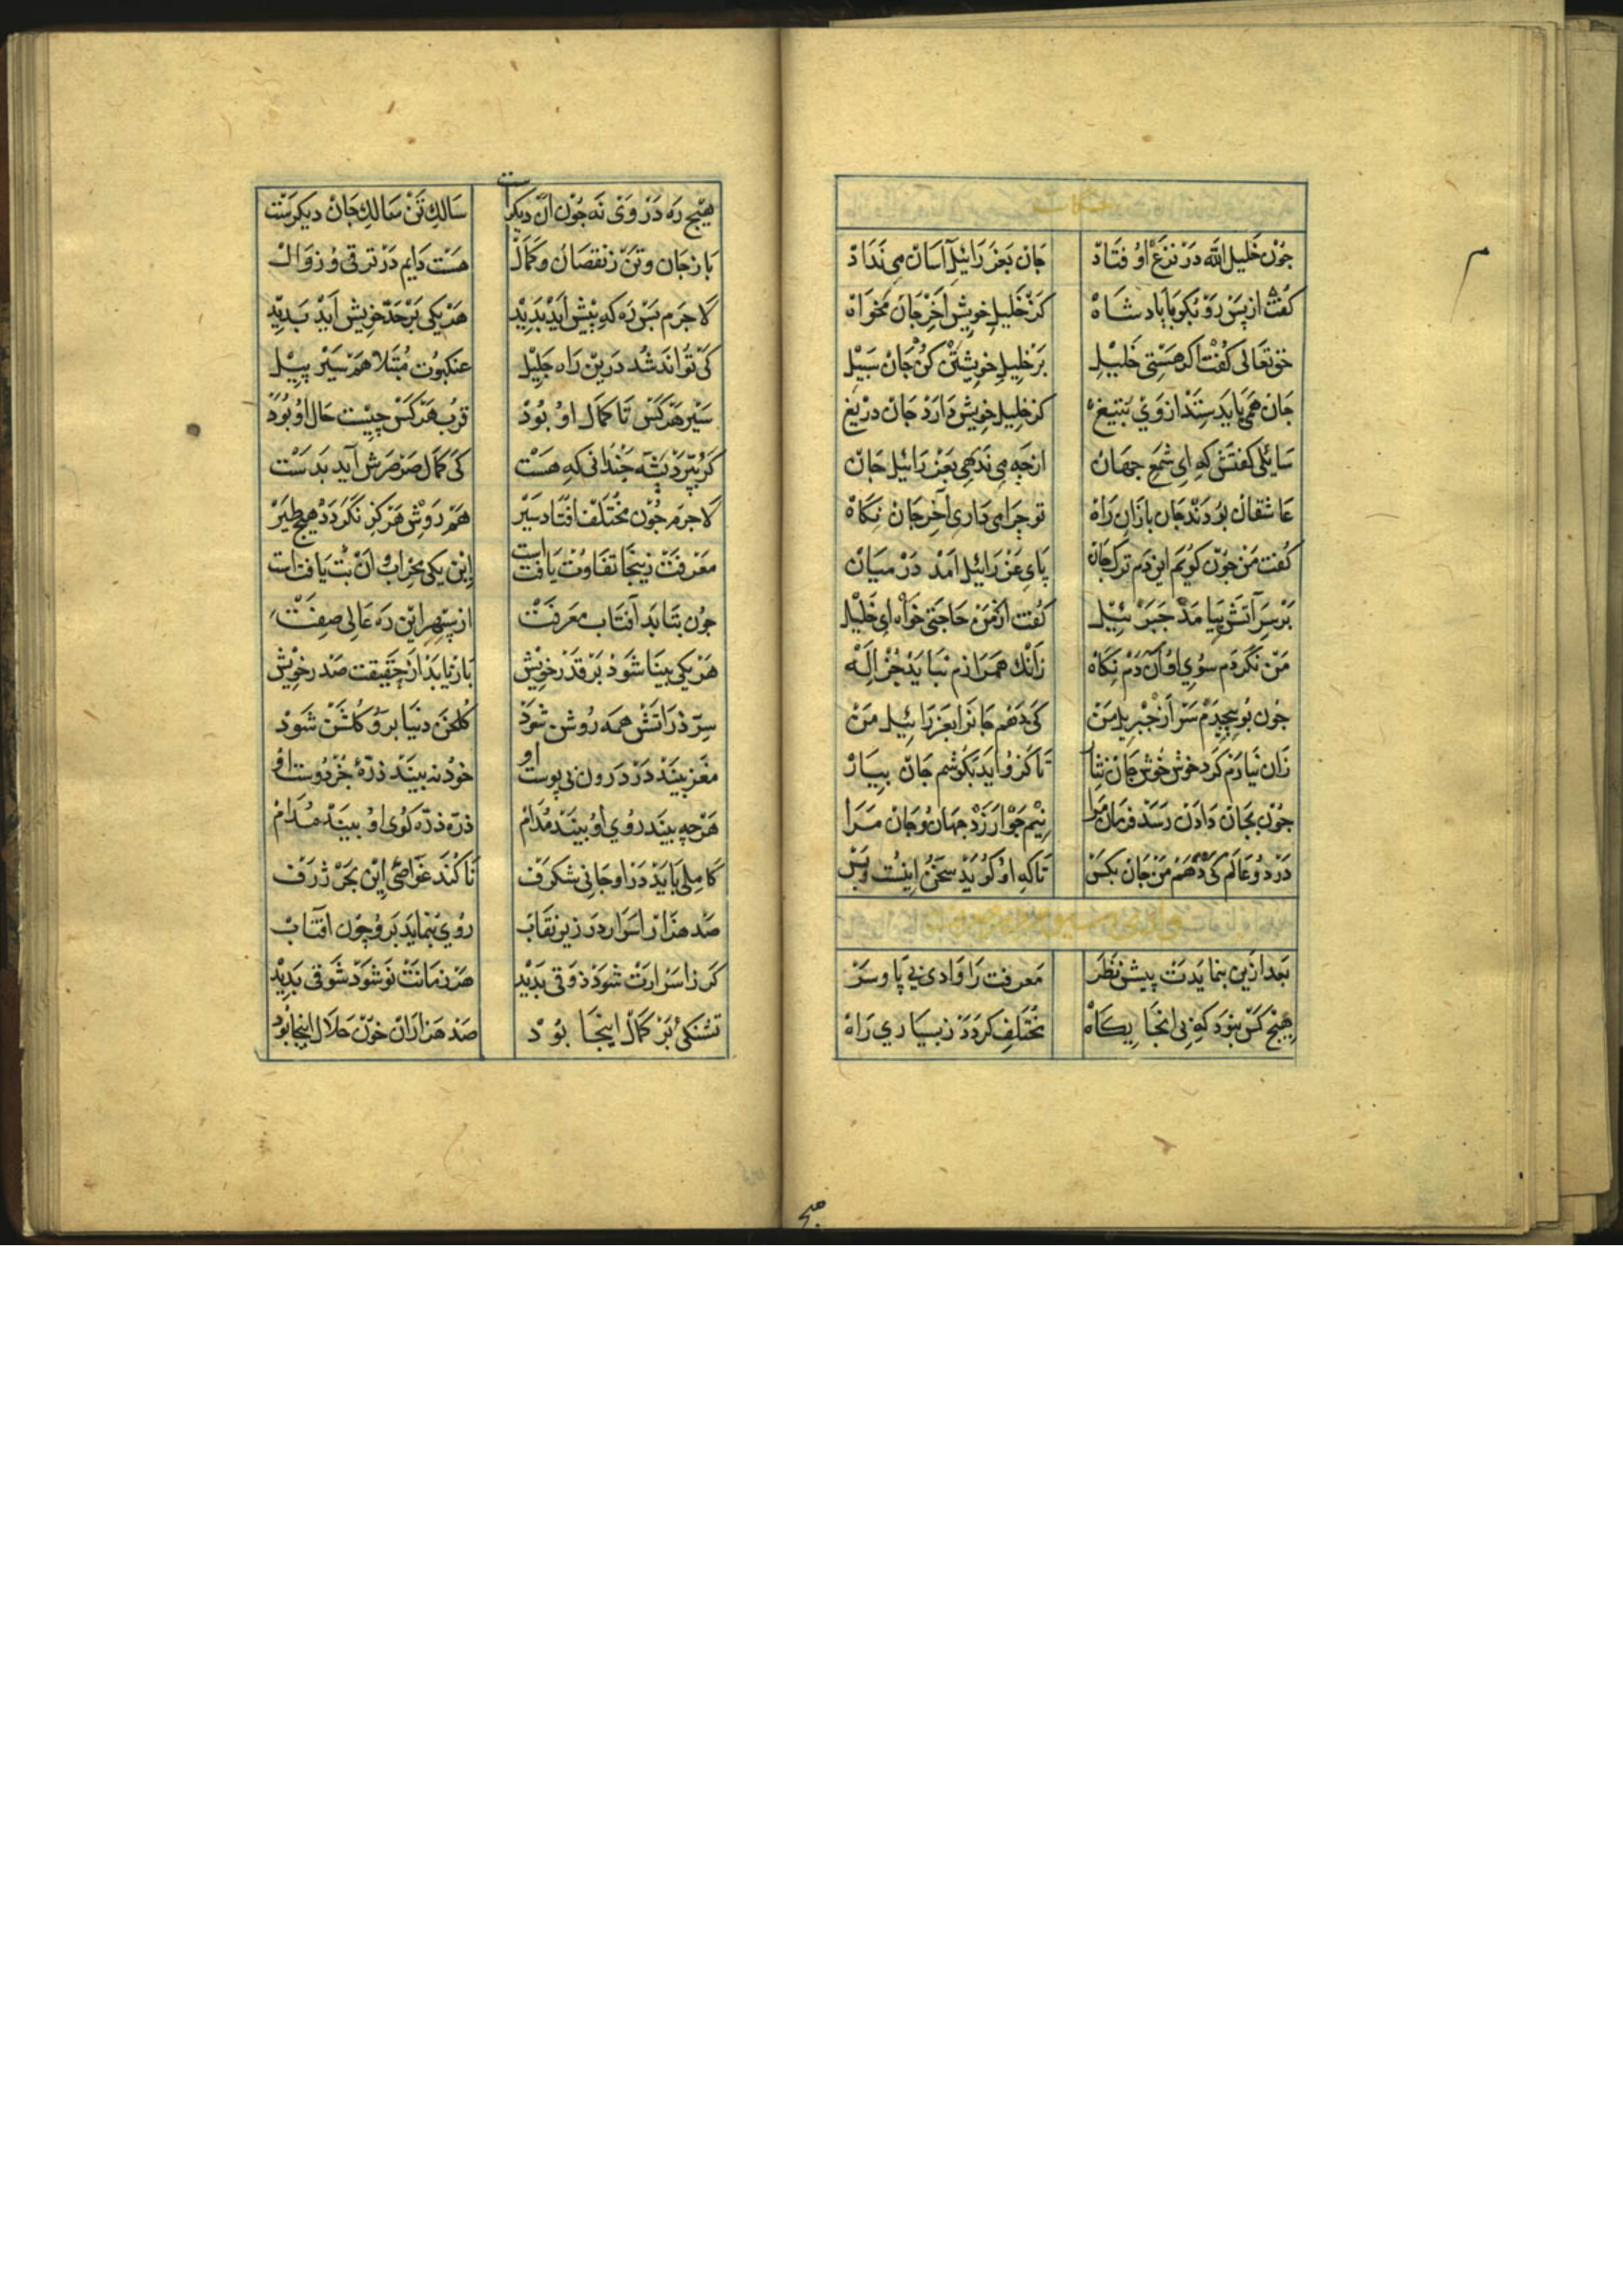 حکایت
جون خلیل الله در نزع اوفتاد جان بعزرائیل آسان می نداد
کفت از پس رو بکو با پادشاه کز خلیل خویش آخر جان مخواه
حق تعالی کفت اکر هستی خلیل بر خلیل خویشتن کن جان سبیل
جان همی باید ستد از وی بتیغ کز خلیل خویش دارد جان دریغ
سائلی کفتش که ای شمع جهان از چه می ندهی بعزرائیل جان
عاشقان بودند جان بازان راه تو جرا می داری آخر جان نکاه
کفت من جون کویم این دم ترک جان پای عزرائیل آمد در میان
بر سر آتش بیامد جبرئیل کفت از من حاجتی خواه ای خلیل
من نکردم سوی او آن دم نکاه زانک همرازم نباید جز اله
جون بپیجیدم سر از جبریل من کی دهم جانرا بعزرائیل من
زان نیارم کرد خوش خوش جان نثار تا کزو آید بکوشم جان بیار
جون بجان دادن رسد فرمان مرا نیم جو ارزد جهان و جان مرا
در دو عالم کی دهم من جان بکس تا که او کوید سخن اینست و بس
بعد ازین بنمایدت پیش نظر معرفت را وادی بی پا و سر
هیج کس نبود که فی آنجایکاه مختلف کردد ز بسیاری راه
هیج ره در وی نه جون آن دیکرست سالک تن سالک جان دیکرست
باز جان و تن ز نقصان و کمال هست دایم در ترقی و زوال
لاجرم بس ره که پیش آید بدید هر یکی بر حد خویش آید بدید
کی تواند شد درین راه جلیل عنکبوت مبتلا هم سیر پیل
سیر هر کس تا کمال او بود قرب هر کس جیست حال او بود
کر بپرد پشه جندانی که هست کی کمال صرصرش آید بدست
لاجرم جون مختلف افتاد سیر هم روش هرکز نکردد هیج طیر
معرفت زینجا تفاوت یافت است این یکی محراب و آن بت یافت است
جون بتابد آفتاب معرفت از سپهر این ره عالی صفت
هر یکی بینا شود بر قدر خویش باز یابد از حقیقت صدر خویش
سر ذراتش همه روشن شود کلخن دنیا برو کلشن شود
مغز بیند در درون نی پوست او خود نه بیند ذره جز دوست او
هر چه بیند روی او بیند مدام ذره ذره کوی او بیند مدام
صد هزار اسرار در زیر نقاب روی بنماید برو جون آفتاب
کاملی باید در او جانی شکرف تا کند غواصی این بحر ژرف
کر ز اسرارت شود ذوقی بدید هر زمانت نو شود شوقی بدید
تشنکی بر کمال اینجا بود صد هزاران خون حلال اینجا بود